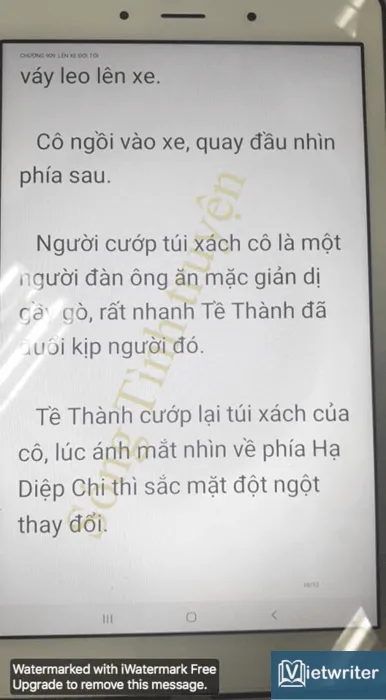 váy leo lên xe.
Cô ngồi vào xe, quay đầu nhìn
phía sau.
Người cướp túi xách cô là một
người đàn ông ăn mặc giản dị
gầy gò, rất nhanh Tề Thành đã
đuổi kịp người đó.
Tề Thành cướp lại túi xách của
cô, lúc ánh mắt nhìn về phía Hạ
Diệp Chi thì sắc mặt đột ngột
thay đổi.
Sóng Tình truyện
Watermarked with iWatermark Free
Upgrade to remove this message.
Vietwriter